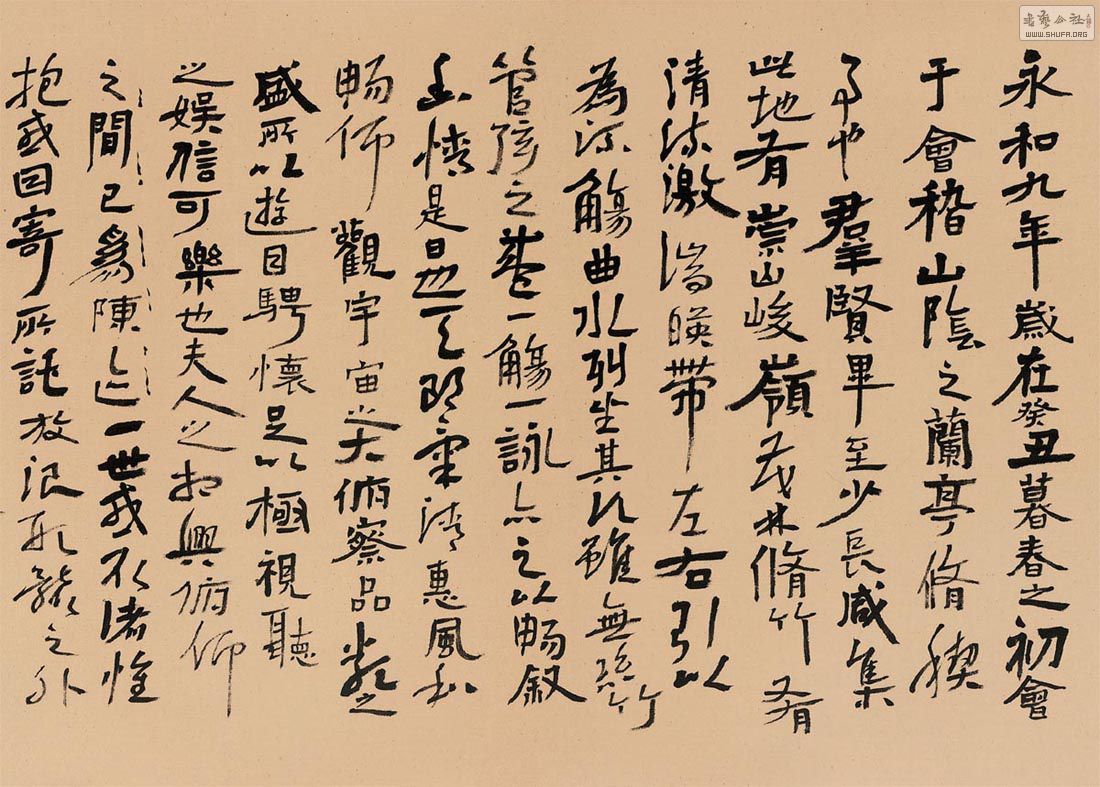 永和九年歲在癸丑暮春之初會
于會稽山陰之蘭亭脩稧
事也羣賢畢至少長咸集
此地有崇山峻嶺茂林脩竹又有
清流激湍暎帶左右引以
為流觴曲水列坐其次雖無絲竹
管弦之盛一觴一詠亦足以暢敘
幽情是日也天朗氣清惠風和
暢仰觀宇宙之大俯察品類之
盛所以遊目騁懷足以極視聽
之娛信可樂也夫人之相與俯仰
之間已為陳迹一世或取諸懷
抱或因寄所託放浪形骸之外
書藝公社
WWW.SHUFA.ORG